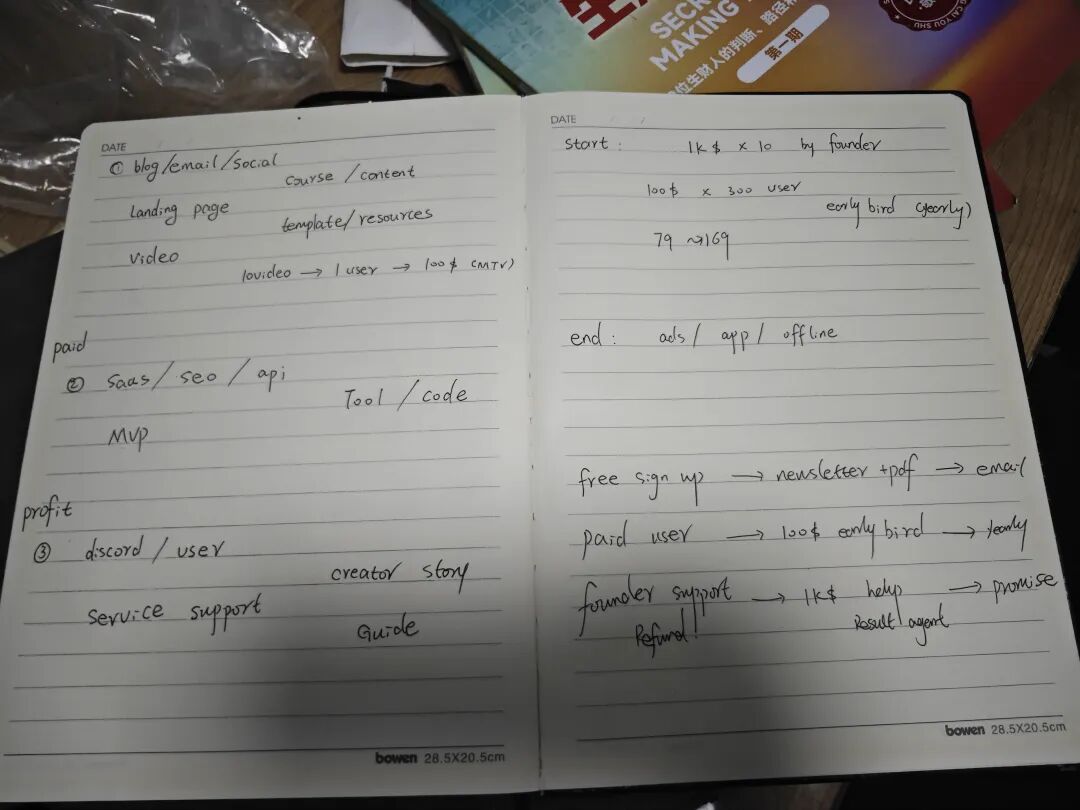 SECRE
MAKING
位生财人的判断、路径和
第一期
CAI YOU SHU
DATE
① blog/email/social
course / content
Landing page
template/resources
Video
10video → 1 user → 100$ (MTV)
paid
② saas/ seo / api
Tool / code
MVP
profit
③ discord / user
creator story
service support
Guide
bowen 28.5X20.5cm
DATE
start : 1K$ x 10 by founder
100$ x 300 user
early bird (yearly)
79 ~> 169
end : ads / app / offline
free sign up → newsletter +pdf → email
paid user → 100$ early bird → yearly
founder support → 1K$ help → promise
Refund! Result agent
bowen 28.5X20.5cm